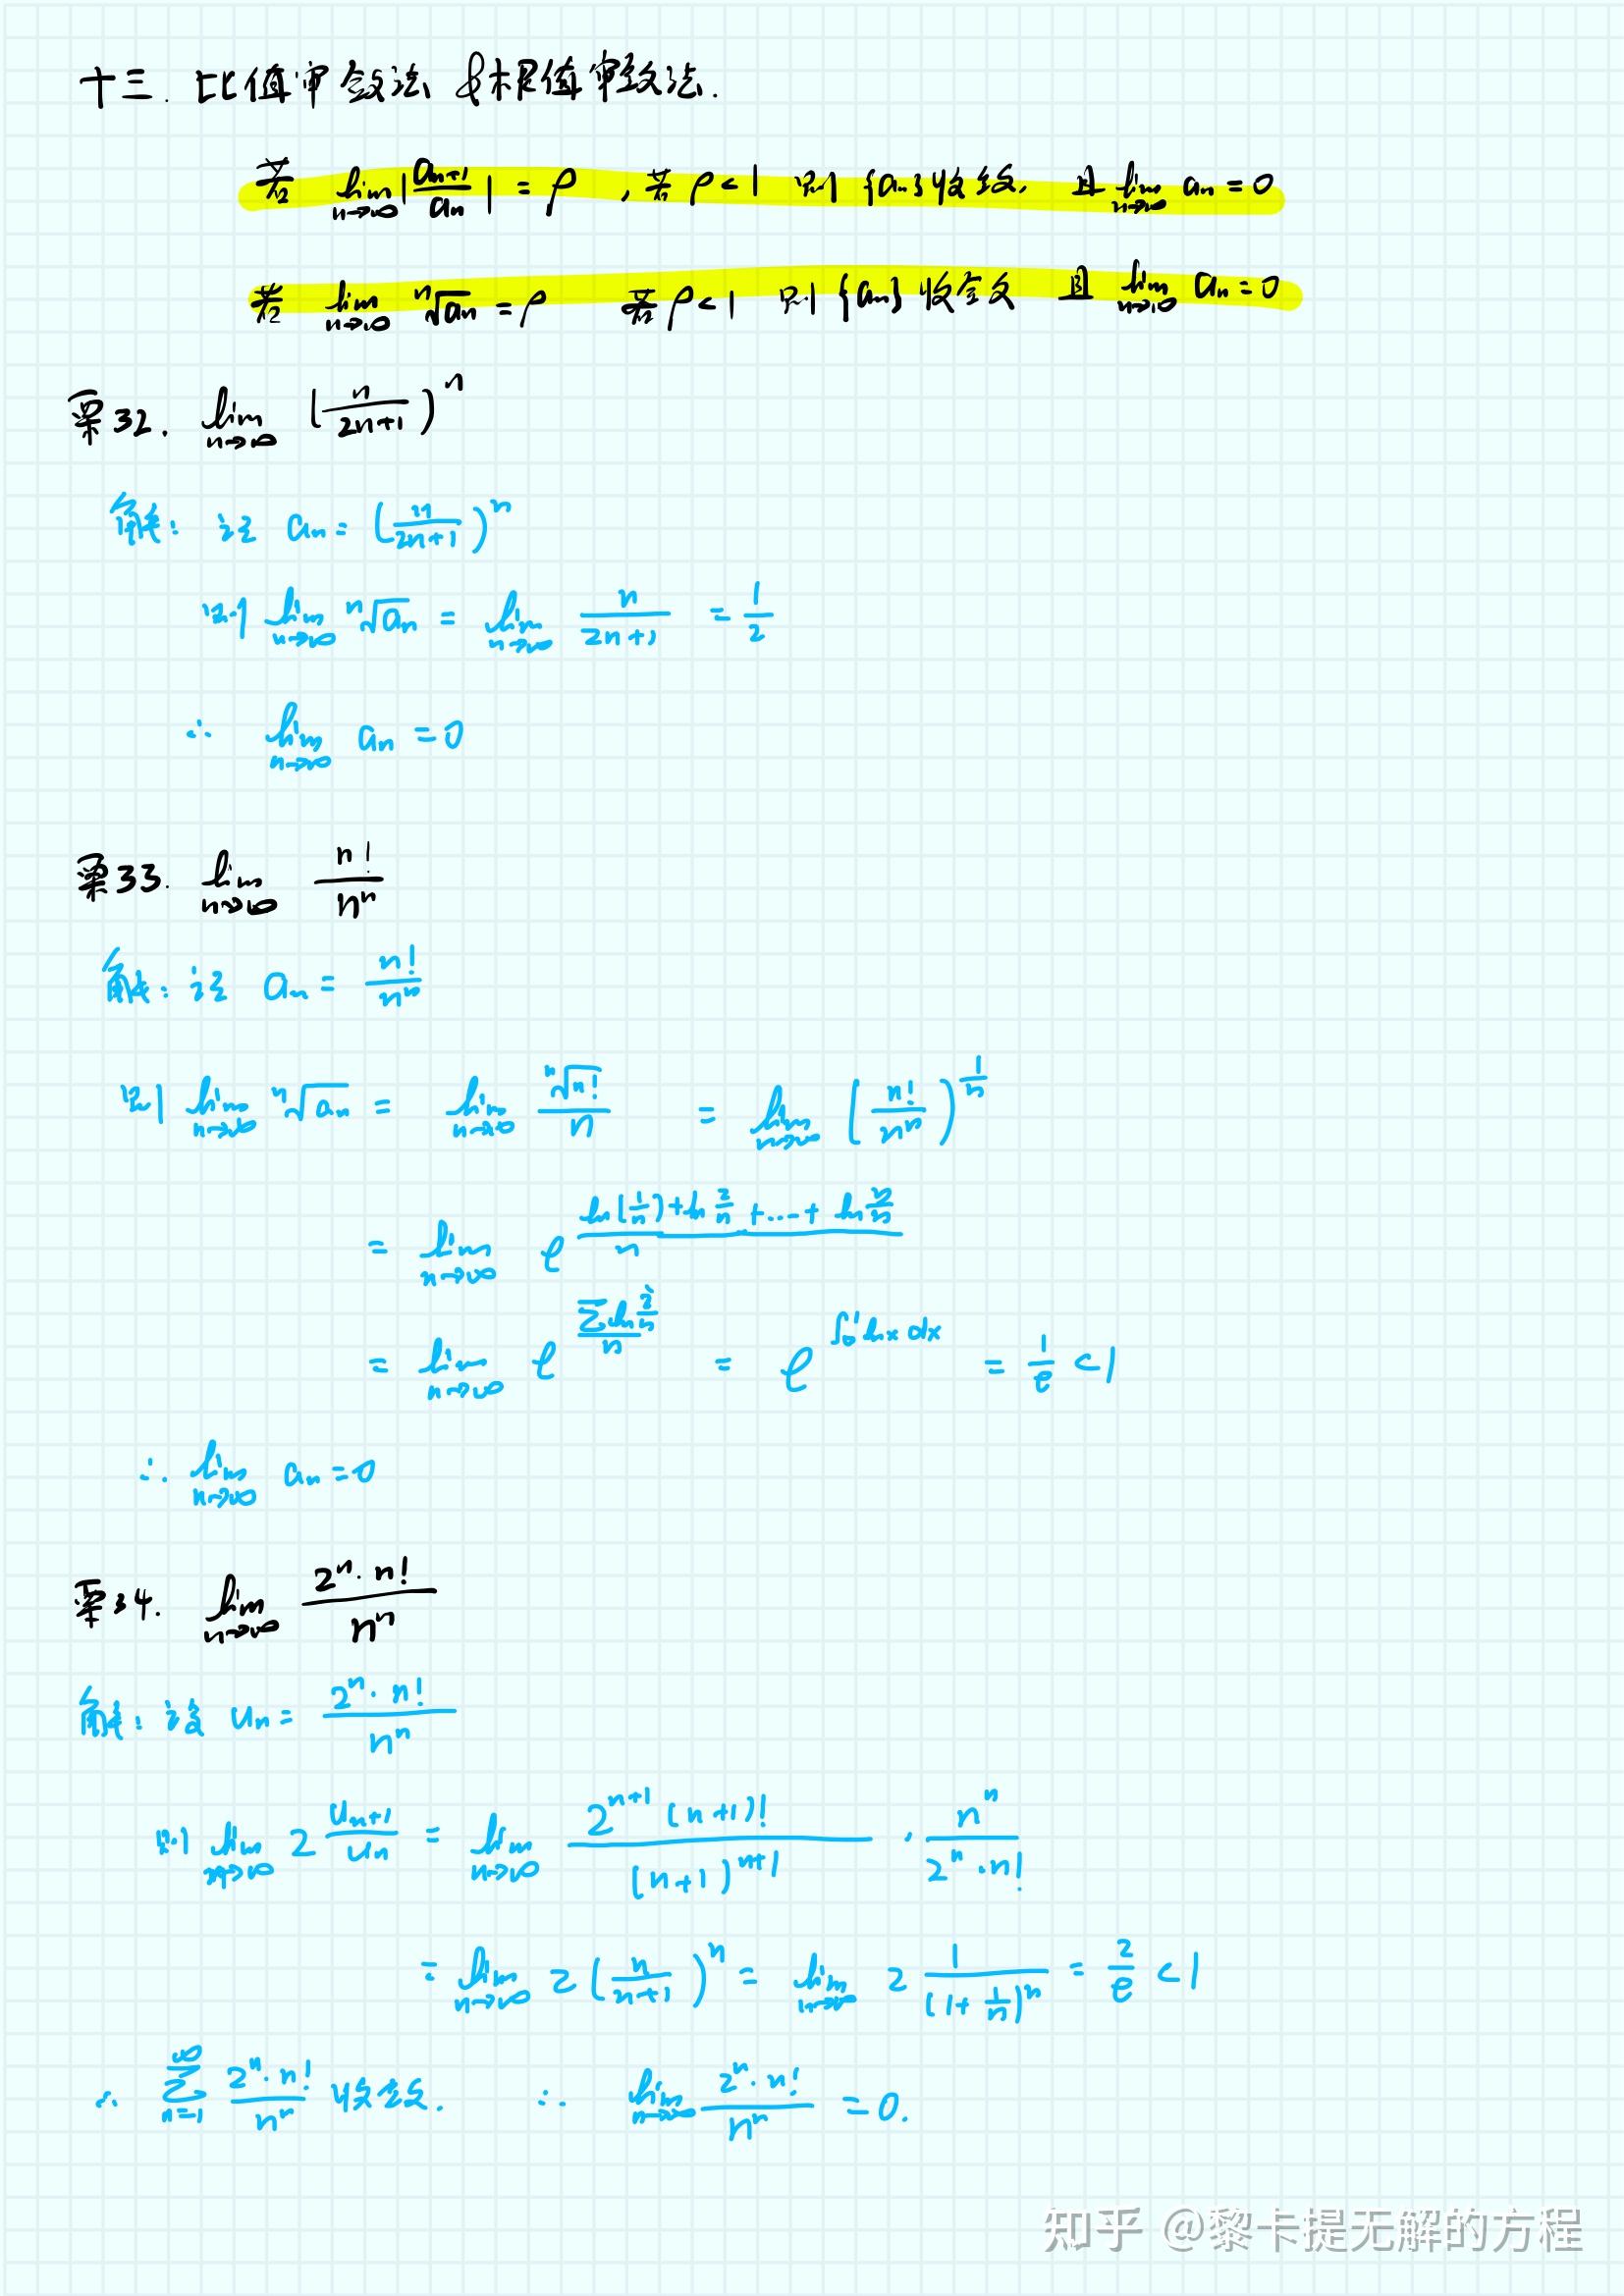 十三. 比值审敛法 & 根值审敛法.
若 lim_{n→∞} |a_{n+1}/a_n| = ρ , 若 ρ<1 则 {a_n} 收敛. 且 lim_{n→∞} a_n = 0
若 lim_{n→∞} ⁿ√a_n = ρ 若 ρ<1 则 {a_n} 收敛 且 lim_{n→∞} a_n = 0
栗32. lim_{n→∞} (n/(2n+1))^n
解: 记 a_n = (n/(2n+1))^n
则 lim_{n→∞} ⁿ√a_n = lim_{n→∞} n/(2n+1) = 1/2
∴ lim_{n→∞} a_n = 0
栗33. lim_{n→∞} n!/n^n
解: 记 a_n = n!/n^n
则 lim_{n→∞} ⁿ√a_n = lim_{n→∞} ⁿ√n!/n = lim_{n→∞} (n!/n^n)^{1/n}
= lim_{n→∞} e^{(ln(1/n)+ln 2/n+...+ln n/n)/n}
= lim_{n→∞} e^{(∑ln i/n)/n} = e^{∫₀¹ lnx dx} = 1/e <1
∴ lim_{n→∞} a_n = 0
栗34. lim_{n→∞} 2^n·n!/n^n
解: 设 u_n = 2^n·n!/n^n
则 lim_{n→∞} 2 u_{n+1}/u_n = lim_{n→∞} 2^{n+1}(n+1)!/(n+1)^{n+1} · n^n/(2^n·n!)
= lim_{n→∞} 2(n/(n+1))^n = lim_{n→∞} 2 1/(1+1/n)^n = 2/e <1
∴ ∑_{n=1}^{∞} 2^n·n!/n^n 收敛. ∴ lim_{n→∞} 2^n·n!/n^n = 0.
知乎 @黎卡提无解的方程